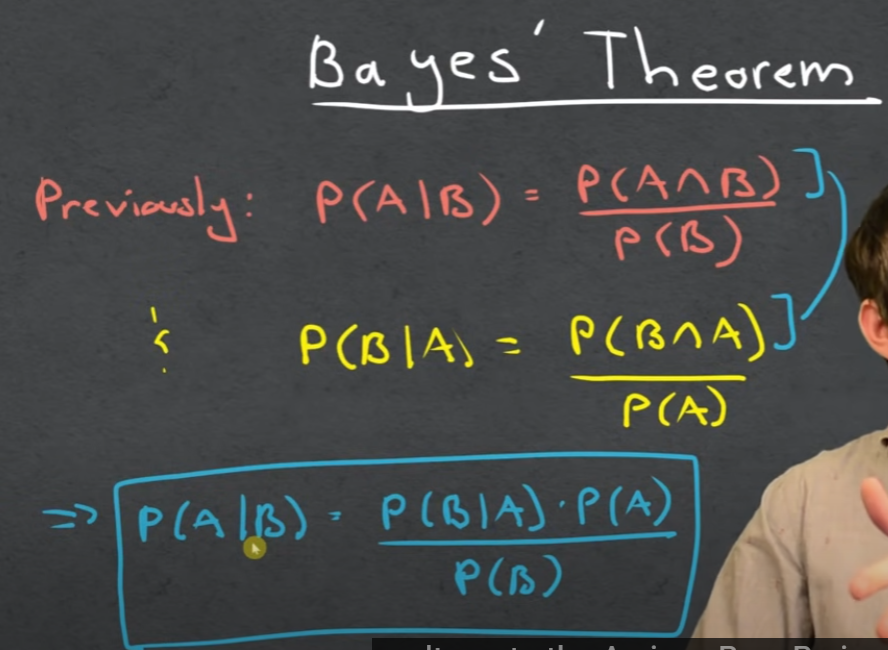 Bayes' Theorem
Previously: P(A|B) = P(A∩B) / P(B)
& P(B|A) = P(B∩A) / P(A)
=> P(A|B) = P(B|A)·P(A) / P(B)